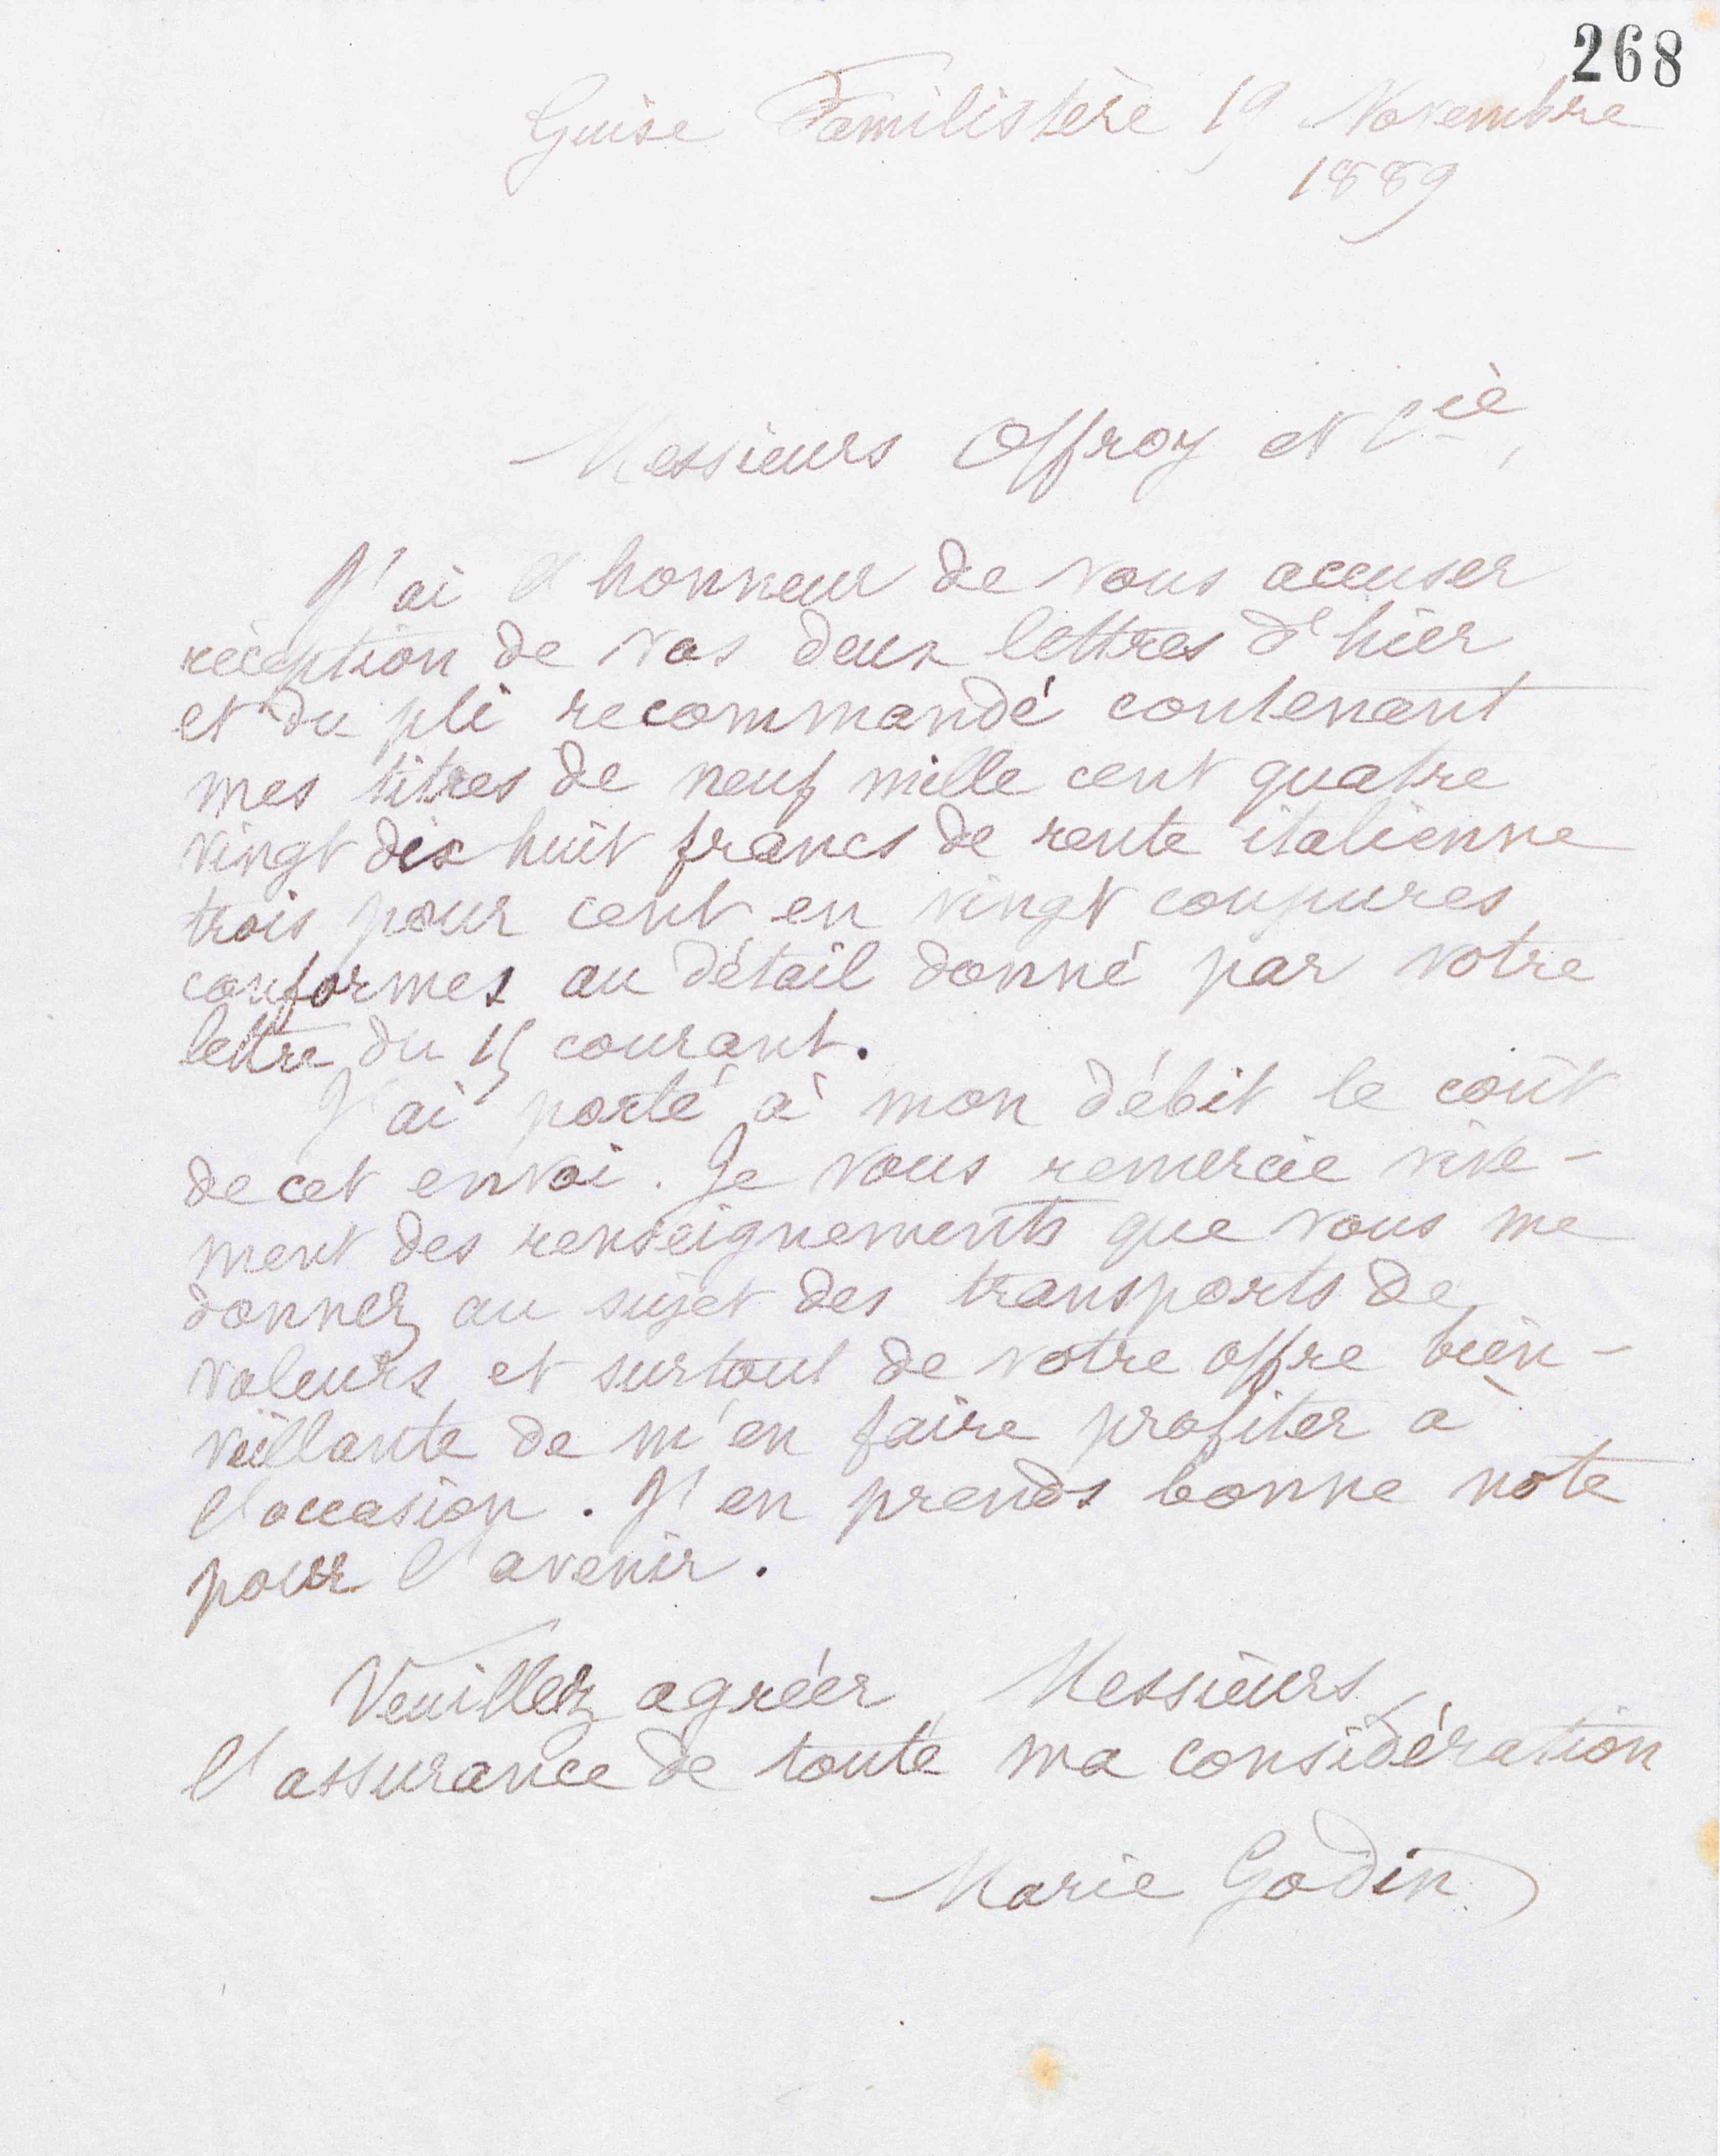 268
Guise Familistère 19 Novembre
1889
Messieurs Offroy et Cie,
J'ai l'honneur de vous accuser
réception de vos deux lettres d'hier
et du pli recommandé contenant
mes titres de neuf mille cent quatre
vingt dix huit francs de rente italienne
trois pour cent en vingt coupures
conformes au détail donné par votre
lettre du 15 courant.
J'ai porté à mon débit le coût
de cet envoi. Je vous remercie vive-
ment des renseignements que vous me
donnez au sujet des transports de
valeurs et surtout de votre offre bien-
veillante de m'en faire profiter à
l'occasion. J'en prends bonne note
pour l'avenir.
Veuillez agréer, Messieurs,
l'assurance de toute ma considération
Marie Godin